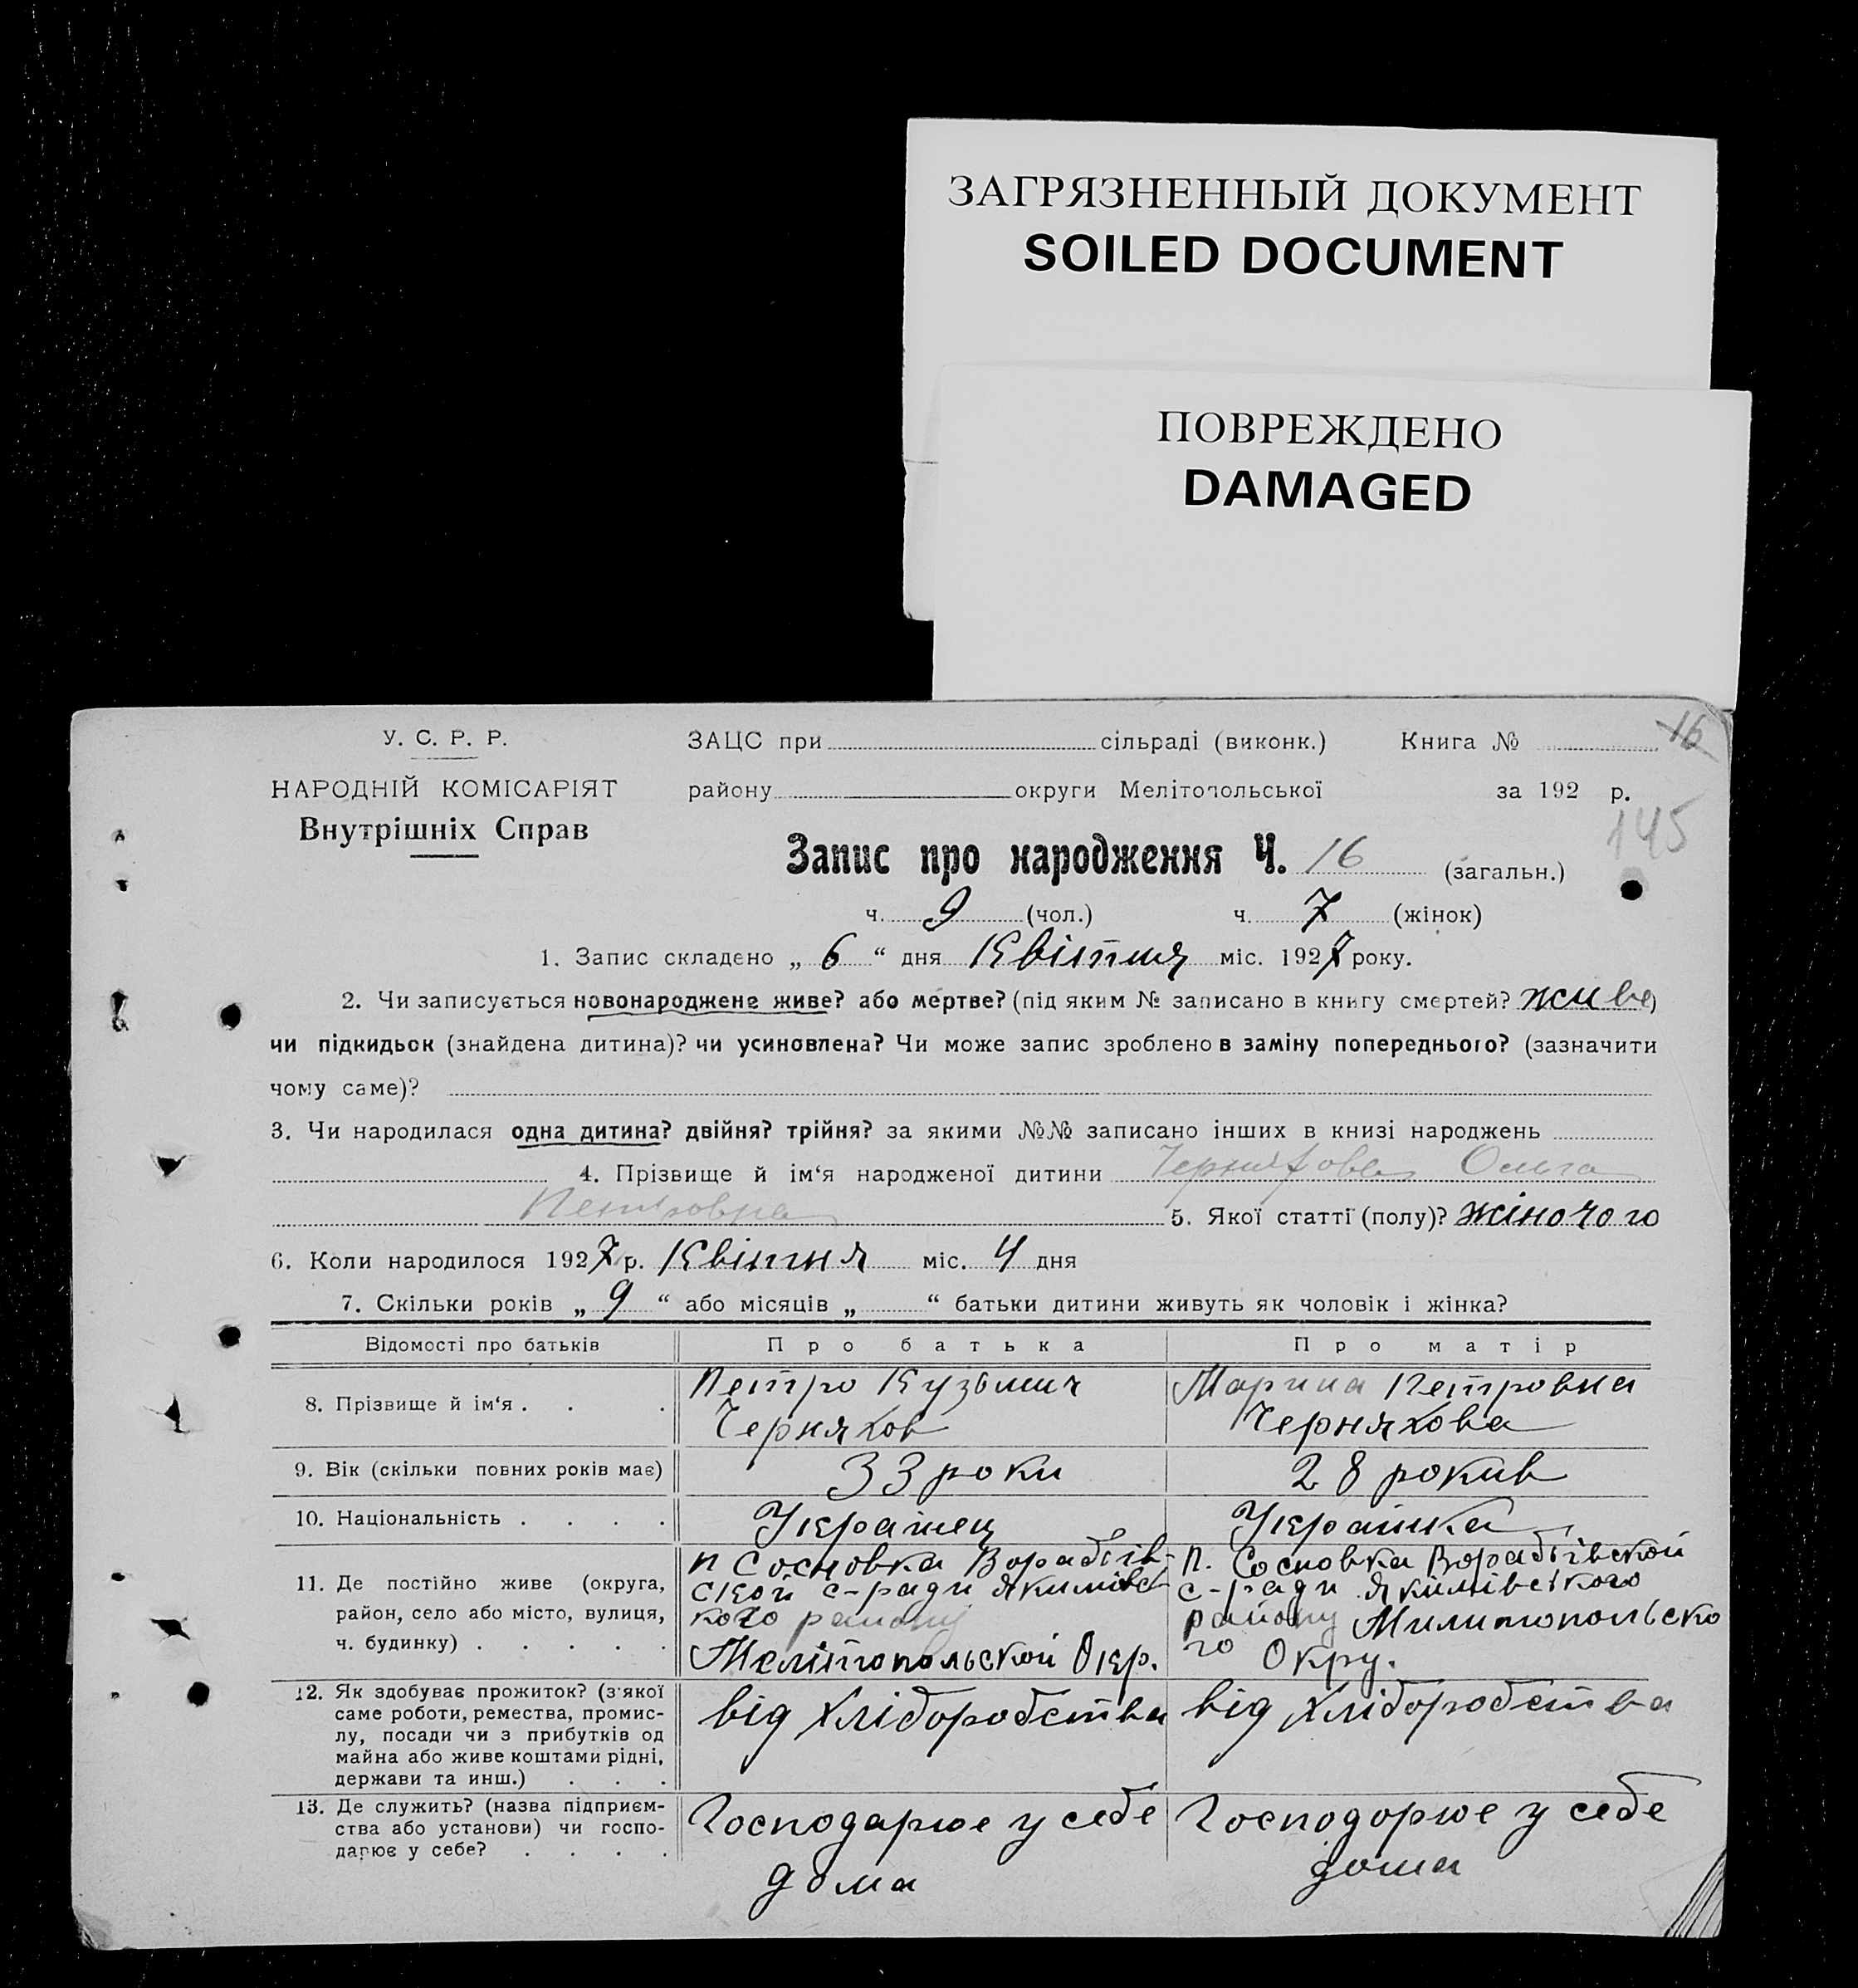 ЗАГРЯЗНЕННЫЙ ДОКУМЕНТ
SOILED DOCUMENT
ПОВРЕЖДЕНО
DAMAGED
16
У. С. Р. Р.
НАРОДНІЙ КОМІСАРІЯТ
Внутрішніх Справ
ЗАЦС при сільраді (виконк.) Книга №
району округи Мелітопольської за 192 р.
145
Запис про народження Ч. 16 (загальн.)
ч. 9 (чол.) ч. 7 (жінок)
1. Запис складено „ 6 “ дня Квітня міс. 1927 року.
2. Чи записується новонароджене живе? або мертве? (під яким № записано в книгу смертей? живе)
чи підкидьок (знайдена дитина)? чи усиновлена? Чи може запис зроблено в заміну попереднього? (зазначити
чому саме)?
3. Чи народилася одна дитина? двійня? трійня? за якими №№ записано інших в книзі народжень
4. Прізвище й ім‘я народженої дитини Черняхова Ольга
Петровна 5. Якої статті (полу)? жіночого
6. Коли народилося 1927 р. Квітня міс. 4 дня
7. Скільки років „ 9 “ або місяців „ “ батьки дитини живуть як чоловік і жінка?
Відомості про батьків Про батька Про матір
8. Прізвище й ім‘я . . . Петро Кузьмич Марина Петровна
Черняхов Черняхова
9. Вік (скільки повних років має) 33 роки 28 рокив
10. Національність . . . . Украінец Украинка
11. Де постійно живе (округа, район, село або місто, вулиця, ч. будинку) . . . . .
п Сосновка Ворабьів-
ской с-ради Якимівсь
кого району
Мелітопольской Окр.
п. Сосновка Ворабьівской
с-ради Якимівського
району Милитопольско
го Окру.
12. Як здобуває прожиток? (з'якої
саме роботи, ремества, промис-
лу, посади чи з прибутків од
майна або живе коштами рідні,
держави та инш.) . . .
від хліборобства від хліборобства
13. Де служить? (назва підприєм-
ства або установи) чи госпо-
дарює у себе? . . . .
Господарює у себе
дома
Господорює у себе
дома